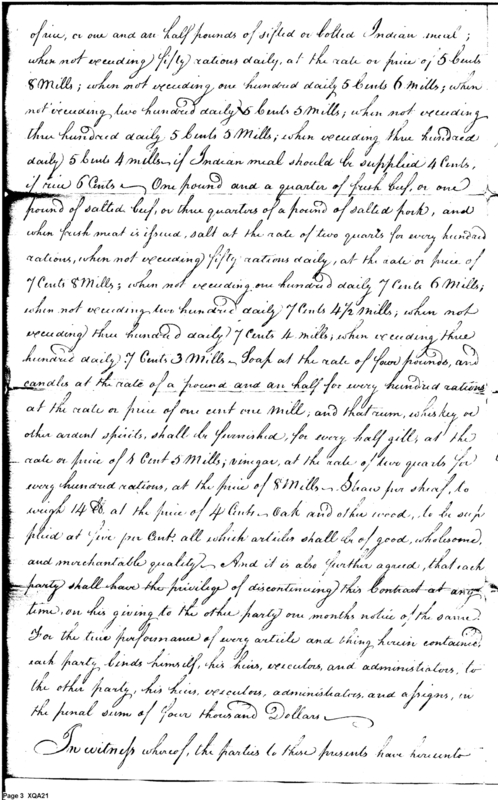 of rice, or one and an half pounds of sifted or bolted Indian meal;
when not exceeding fifty rations daily, at the rate or price of 5 Cents
8 Mills; when not exceeding one hundred daily 5 Cents 6 Mills; when
not exceeding two hundred daily 5 Cents 5 Mills; when not exceeding
three hundred daily 5 Cents 5 Mills; when exceeding three hundred
daily 5 Cents 4 mills, if Indian meal should be supplied 4 Cents,
if rice 6 Cents — One pound and a quarter of fresh beef, or one
pound of salted beef, or three quarters of a pound of salted pork, and
when fresh meat is issued, salt at the rate of two quarts for every hundred
rations, when not exceeding fifty rations daily, at the rate or price of
7 Cents 8 Mills; when not exceeding one hundred daily 7 Cents 6 Mills;
when not exceeding two hundred daily 7 Cents 4 1/2 Mills; when not
exceeding three hundred daily 7 Cents 4 mills; when exceeding three
hundred daily 7 Cents 3 Mills — Soap at the rate of four pounds, and
candles at the rate of a pound and an half for every hundred rations
at the rate or price of one cent one Mill; and that rum, whiskey or
other ardent spirits, shall be furnished, for every half gill, at the
rate or price of 1 Cent 5 Mills; vinegar, at the rate of two quarts for
every hundred rations, at the price of 8 Mills — Straw per sheaf, to
weigh 14 lb at the price of 4 Cents — Oak and other wood, to be sup
plied at five per Cent. all which articles shall be of good, wholesome,
and merchantable quality — And it is also further agreed, that each
party shall have the privilege of discontinuing this Contract at any
time, on his giving to the other party one months notice of the same.
For the true performance of every article and thing herein contained,
each party binds himself, his heirs, executors, and administrators, to
the other party, his heirs, executors, administrators, and assigns, in
the penal sum of Four thousand Dollars —
In witness whereof, the parties to these presents have hereunto
Page 3 XQA21